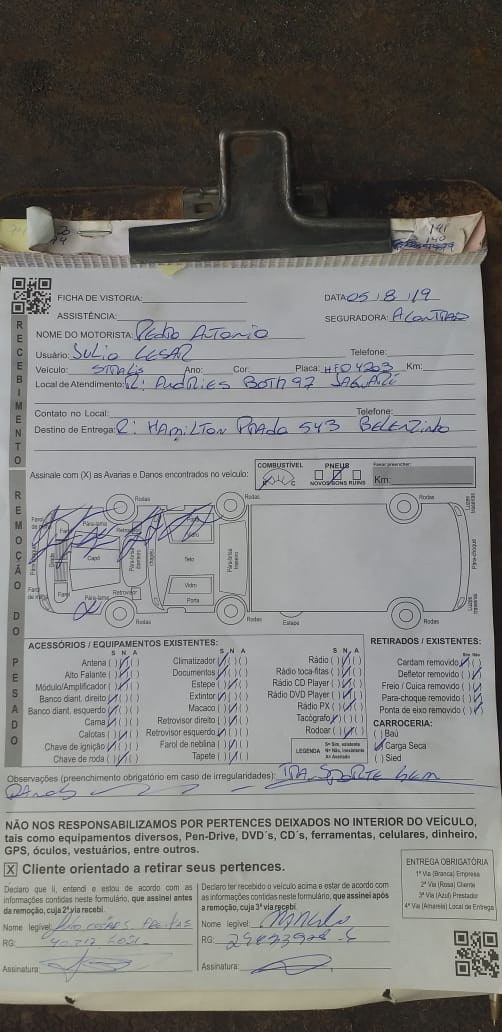 FICHA DE VISTORIA:
DATA 05/8/19
ASSISTÊNCIA:
SEGURADORA:
NOME DO MOTORISTA: Pedro Antonio
Usuário: Julio Cesar Telefone:
Veículo: Stralis Ano: Cor: Placa: HFD4203 Km:
Local de Atendimento: R: Andries Both 97 Jaguaré
Contato no Local: Telefone:
Destino de Entrega: R: Hamilton Prado 543 Belenzinho
RECEBIMENTO
Assinale com (X) as Avarias e Danos encontrados no veículo:
COMBUSTÍVEL
PNEUS
NOVOS BONS RUINS
Favor preencher:
Km:
REMOÇÃO DO PESADO
Rodas Rodas Rodas
Farol
Para-lama
Retrovisor
Capô
Teto
Vidro
Porta
Para-lama
Retrovisor
Para-choque
Rodas Rodas Rodas
Estepe
ACESSÓRIOS / EQUIPAMENTOS EXISTENTES:
S N A
Antena
Alto Falante
Módulo/Amplificador
Banco diant. direito
Banco diant. esquerdo
Cama
Calotas
Chave de ignição
Chave de roda
S N A
Climatizador
Documentos
Estepe
Extintor
Macaco
Retrovisor direito
Retrovisor esquerdo
Farol de neblina
Tapete
S N A
Rádio
Rádio toca-fitas
Rádio CD Player
Rádio DVD Player
Rádio PX
Tacógrafo
Rodoar
LEGENDA
S= Sim, existente
N= Não, inexistente
A= Avariado
RETIRADOS / EXISTENTES:
Sim Não
Cardam removido
Defletor removido
Freio / Cuica removido
Para-choque removido
Ponta de eixo removido
CARROCERIA:
Baú
Carga Seca
Sied
Observações (preenchimento obrigatório em caso de irregularidades): Transporte sem
Danos
NÃO NOS RESPONSABILIZAMOS POR PERTENCES DEIXADOS NO INTERIOR DO VEÍCULO,
tais como equipamentos diversos, Pen-Drive, DVD´s, CD´s, ferramentas, celulares, dinheiro,
GPS, óculos, vestuários, entre outros.
X Cliente orientado a retirar seus pertences.
ENTREGA OBRIGATÓRIA
1ª Via (Branca) Empresa
2ª Via (Rosa) Cliente
3ª Via (Azul) Prestador
4ª Via (Amarela) Local de Entrega
Declaro que li, entendi e estou de acordo com as
informações contidas neste formulário, que assinei antes
da remoção, cuja 2ª via recebi.
Nome legível:
RG:
Assinatura:
Declaro ter recebido o veículo acima e estar de acordo com
as informações contidas neste formulário, que assinei após
a remoção, cuja 3ª via recebi.
Nome legível:
RG:
Assinatura: